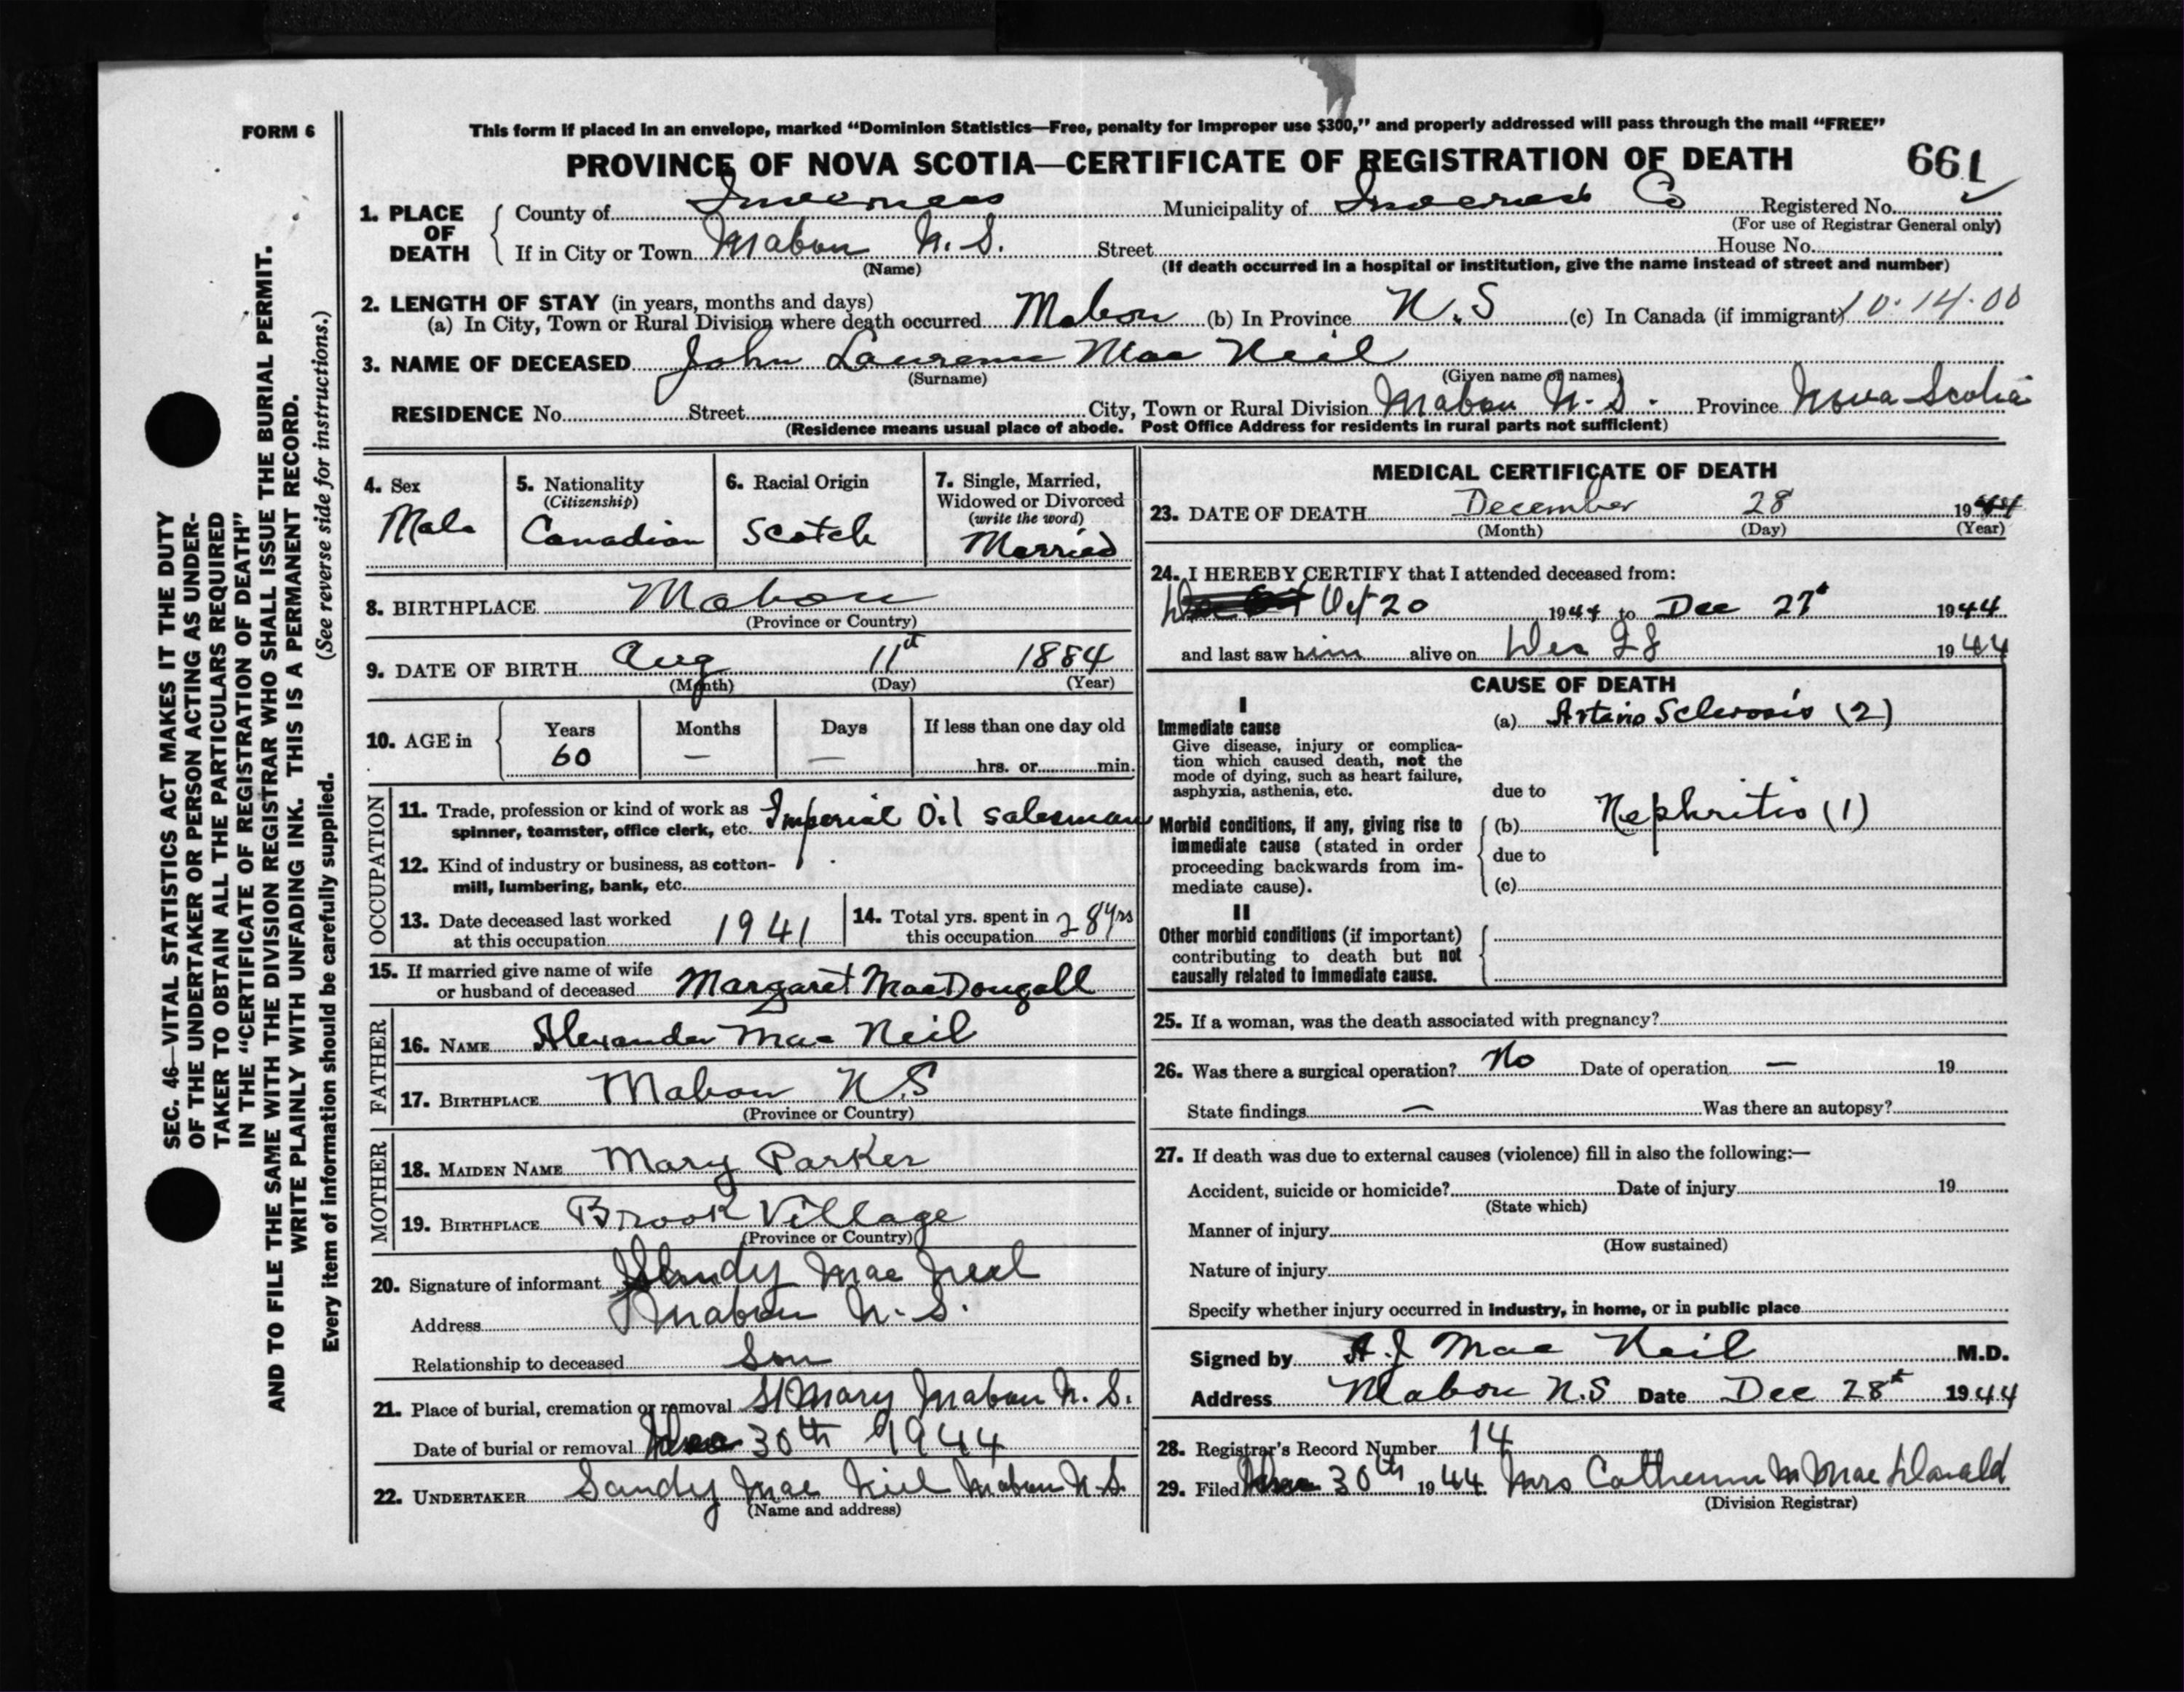 FORM 6
This form if placed in an envelope, marked “Dominion Statistics—Free, penalty for improper use $300,” and properly addressed will pass through the mail “FREE”
PROVINCE OF NOVA SCOTIA—CERTIFICATE OF REGISTRATION OF DEATH
661
1. PLACE OF DEATH
County of Inverness Municipality of Inverness Co Registered No.
(For use of Registrar General only)
If in City or Town Mabou N.S. Street House No.
(Name) (If death occurred in a hospital or institution, give the name instead of street and number)
2. LENGTH OF STAY (in years, months and days)
(a) In City, Town or Rural Division where death occurred Mabou (b) In Province N.S (c) In Canada (if immigrant) 10·14·00
3. NAME OF DECEASED John Laurence Mac Neil
(Surname) (Given name or names)
RESIDENCE No. Street City, Town or Rural Division Mabou N.S. Province Nova Scotia
(Residence means usual place of abode. Post Office Address for residents in rural parts not sufficient)
4. Sex
Male
5. Nationality
(Citizenship)
Canadian
6. Racial Origin
Scotch
7. Single, Married,
Widowed or Divorced
(write the word)
Married
8. BIRTHPLACE Mabou
(Province or Country)
9. DATE OF BIRTH Aug 11th 1884
(Month) (Day) (Year)
10. AGE in
Years Months Days If less than one day old
60 — — hrs. or min.
OCCUPATION
11. Trade, profession or kind of work as
spinner, teamster, office clerk, etc. Imperial Oil salesman
12. Kind of industry or business, as cotton-
mill, lumbering, bank, etc.
13. Date deceased last worked
at this occupation 1941
14. Total yrs. spent in
this occupation 28 yrs
15. If married give name of wife
or husband of deceased Margaret MacDougall
FATHER
16. NAME Alexander Mac Neil
17. BIRTHPLACE Mabou N.S
(Province or Country)
MOTHER
18. MAIDEN NAME Mary Parker
19. BIRTHPLACE Brook Village
(Province or Country)
20. Signature of informant Sandy Mac Neil
Address Mabou N.S.
Relationship to deceased Son
21. Place of burial, cremation or removal St Mary Mabou N.S.
Date of burial or removal Dec 30th 1944
22. UNDERTAKER Sandy Mac Neil Mabou N.S.
(Name and address)
MEDICAL CERTIFICATE OF DEATH
23. DATE OF DEATH December 28 1944
(Month) (Day) (Year)
24. I HEREBY CERTIFY that I attended deceased from:
Oct 20 1944 to Dec 27th 1944
and last saw him alive on Dec 28 1944
CAUSE OF DEATH
I
Immediate cause
Give disease, injury or complica-
tion which caused death, not the
mode of dying, such as heart failure,
asphyxia, asthenia, etc.
(a) Arterio Sclerosis (2)
due to
Morbid conditions, if any, giving rise to
immediate cause (stated in order
proceeding backwards from im-
mediate cause).
(b) Nephritis (1)
due to
(c)
II
Other morbid conditions (if important)
contributing to death but not
causally related to immediate cause.
25. If a woman, was the death associated with pregnancy?
26. Was there a surgical operation? No Date of operation — 19
State findings — Was there an autopsy?
27. If death was due to external causes (violence) fill in also the following:—
Accident, suicide or homicide? Date of injury 19
(State which)
Manner of injury
(How sustained)
Nature of injury
Specify whether injury occurred in industry, in home, or in public place
Signed by A.J Mac Neil M.D.
Address Mabou N.S Date Dec 28th 1944
28. Registrar's Record Number 14
29. Filed Dec 30th 1944 Mrs Catherine M MacDonald
(Division Registrar)
SEC. 46—VITAL STATISTICS ACT MAKES IT THE DUTY
OF THE UNDERTAKER OR PERSON ACTING AS UNDER-
TAKER TO OBTAIN ALL THE PARTICULARS REQUIRED
IN THE “CERTIFICATE OF REGISTRATION OF DEATH”
AND TO FILE THE SAME WITH THE DIVISION REGISTRAR WHO SHALL ISSUE THE BURIAL PERMIT.
WRITE PLAINLY WITH UNFADING INK. THIS IS A PERMANENT RECORD.
Every item of information should be carefully supplied. (See reverse side for instructions.)